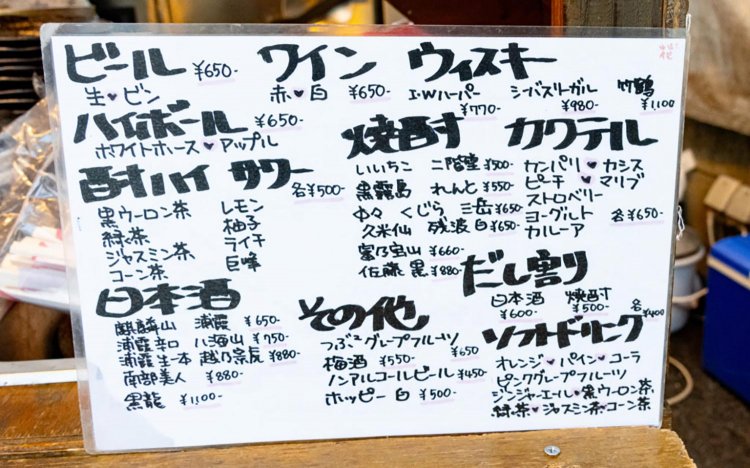 ビール ¥650-
生♥ビン
ワイン
赤♥白 ¥650-
ウィスキー
I・Wハーパー ¥770-
シーバスリーガル ¥980-
竹鶴 ¥1,100
ハイボール ¥650-
ホワイトホース♥アップル
酎ハイ サワー 各¥500-
黒ウーロン茶 レモン
緑茶 柚子
ジャスミン茶 ライチ
コーン茶 巨峰
焼酎
いいちこ 二階堂 ¥500-
黒霧島 れんと ¥550-
くじら 三岳 ¥650-
久米仙 残波 白 ¥650-
富乃宝山 ¥660-
佐藤 黒 ¥880-
カクテル
カンパリ♥カシス
ピーチ♥マリブ
ストロベリー
ヨーグルト 各¥650-
カルーア
日本酒
麒麟山 浦霞 ¥650-
浦霞辛口 八海山 ¥750-
浦霞生一本 越乃景虎 ¥880-
南部美人 ¥880-
黒龍 ¥1,100-
その他
つぶつぶグレープフルーツ ¥650
梅酒 ¥550-
ノンアルコールビール ¥450-
ホッピー 白 ¥500-
だし割り
日本酒 ¥600- 焼酎 ¥500-
ソフトドリンク 各¥400
オレンジ♥パイン♥コーラ
ピンクグレープフルーツ
ジンジャーエール♥黒ウーロン茶
緑茶♥ジャスミン茶♥コーン茶